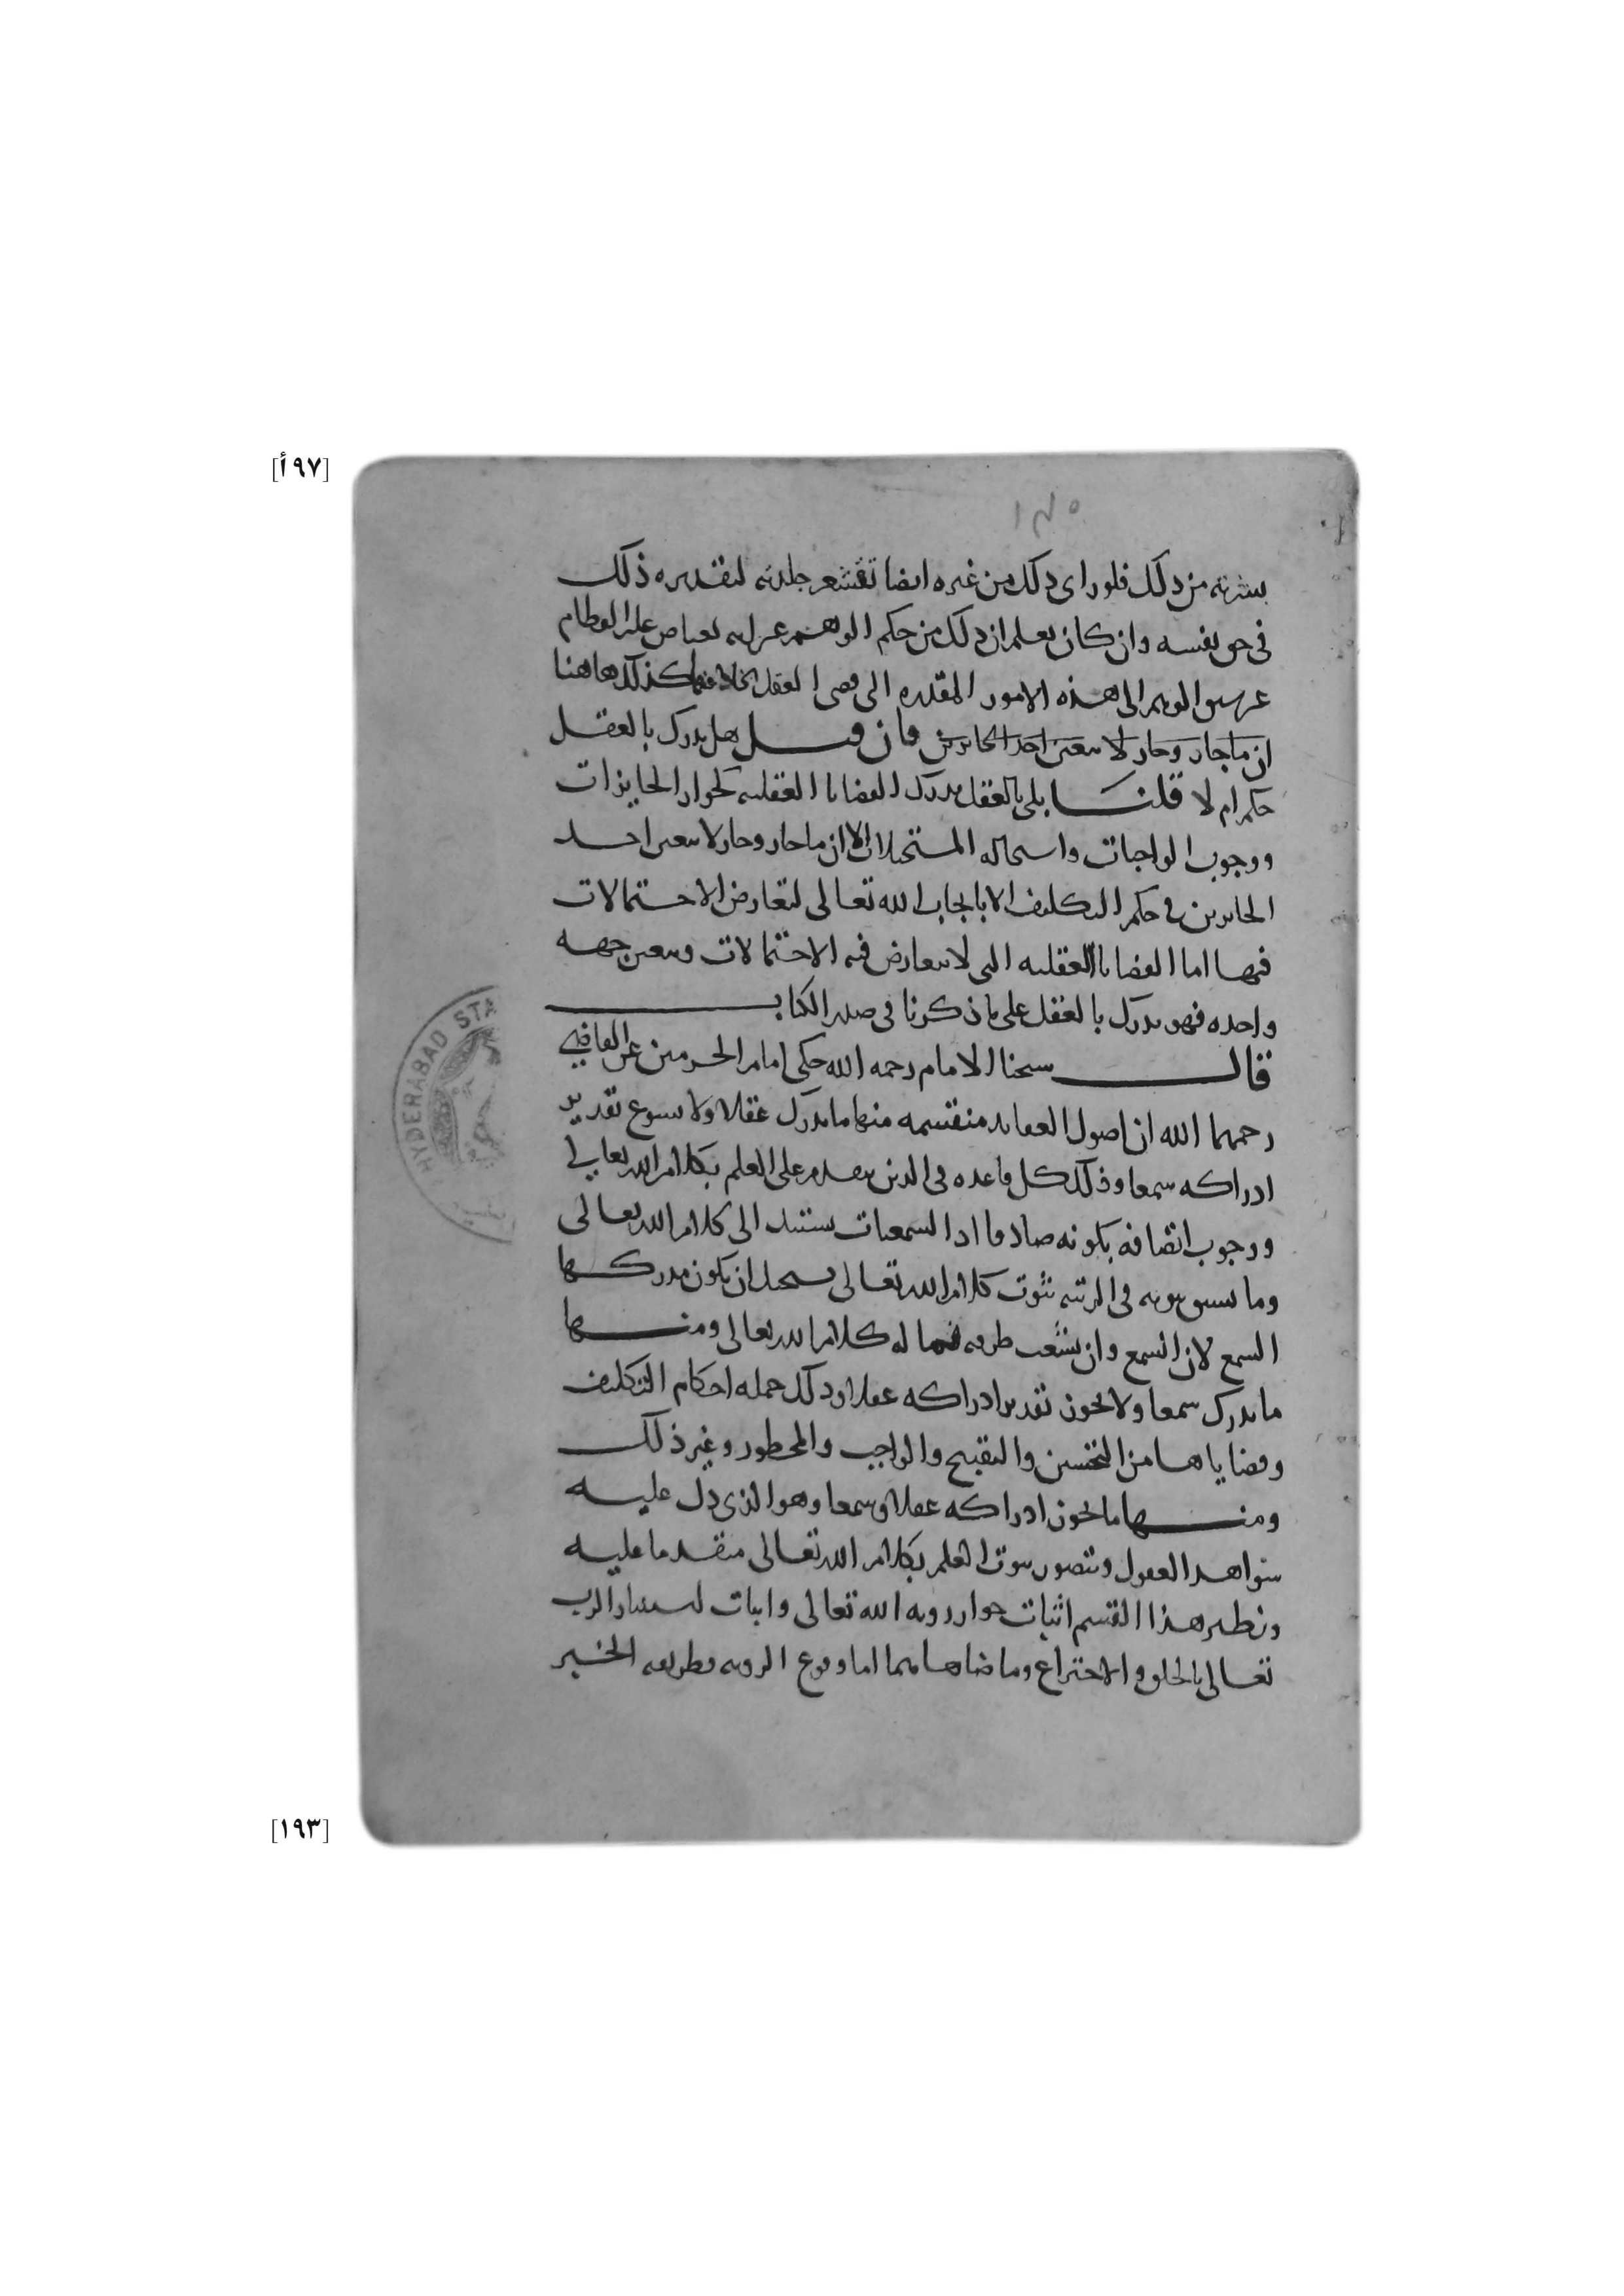 [٩٧أ]
١٣٥
بشرته من ذلك فلو راى ذلك من غيره ايضا تقشعر جلدته لتقديره ذلك
في حق نفسه وان كان يعلم ان ذلك من حكم الوهم غير انه يعتاص عليه الفطام
الوهم الى هذه الامور المقدره الى العقل بخلافها فكذلك هاهنا
ان ما جاز وجاز لا يتعين احد الجائزين فان قيل هل يدرك بالعقل
حكم ام لا قلنا بلى بالعقل يدرك القضايا العقليه كجواز الجايزات
ووجوب الواجبات واستحاله المستحيلات الا ان ما جاز وجاز لا يتعين احد
الجايزين في حكم التكليف الا بايجاب الله تعالى لتعارض الاحتمالات
فيها اما القضايا العقليه التي لا يتعارض فيه الاحتمالات ويتعين جهه
واحده فهو يدرك بالعقل على ما ذكرنا في صدر الكتاب
قال شيخنا الامام رحمه الله حكى امام الحرمين عن القاضي
رحمهما الله ان اصول العقايد منقسمه منها ما يدرك عقلا ولا يسوغ تقدير
ادراكه سمعا وذلك كل قاعده في الدين يتقدم على العلم بكلام الله تعالى
ووجوب اتصافه بكونه صادقا اذ السمعيات يستند الى كلام الله تعالى
وما يسبق ثبوته في المرتبه ثبوت كلام الله تعالى يستحيل ان يكون مدركها
السمع لان السمع وان تشعب طرقه كلام الله تعالى ومنها
ما يدرك سمعا ولا يجوز تقدير ادراكه عقلا وذلك جمله احكام التكليف
وقضاياها من التحسين والتقبيح والواجب والمحظور وغير ذلك
ومنها ما يجوز ادراكه عقلا وسمعا وهو الذي دل عليه
شواهد العقول ويتصور ثبوت العلم بكلام الله تعالى متقدما عليه
ونظير هذا القسم اثبات جواز رويه الله تعالى واثبات استبداد الرب
تعالى بالخلق والاختراع وما ضاهاهما اما وقوع الرويه فطريقه الخبر
HYDERABAD STA
[١٩٣]